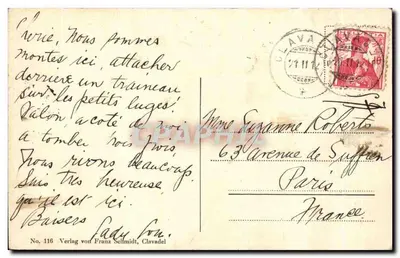 nous sommes
montés ici, attacher
derrière un traineau
sur les petits luges.
a coté de moi
a tomber nous trois
nous rions beaucoup.
Suis très heureuse
qu'elle est ici.
Baisers
Lady
CLAVADEL
Mme Suzanne Roberts
63 avenue de Suffren
Paris
France
No. 116 Verlag von Franz Schmidt, Clavadel